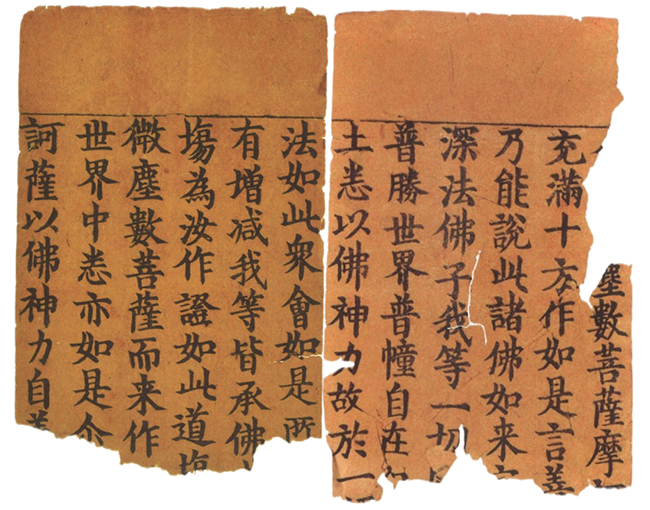 塵數菩薩摩
充滿十方作如是言善
乃能說此諸佛如来
深法佛子我等一切
普勝世界普幢自在
土悉以佛神力故於一
法如此衆會如是所
有增减我等皆承佛
塲為汝作證如此道塲
微塵數菩薩而来作
世界中悉亦如是尒
訶薩以佛神力自